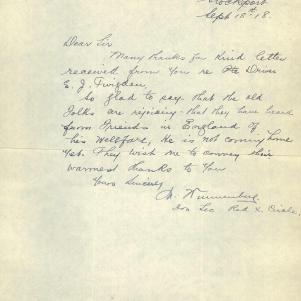 Sept 18th 18.
Dear Sir
Many thanks for kind letter
received from you re Pte Driver
E. J. Twigden,
So glad to say that the old
folks are rejoicing that they have heard
from friends in England of
his wellfare, He is not coming home
yet. They wish me to convey their
warmest thanks to You
Yours Sincerely
Hon Sec Red X Circle